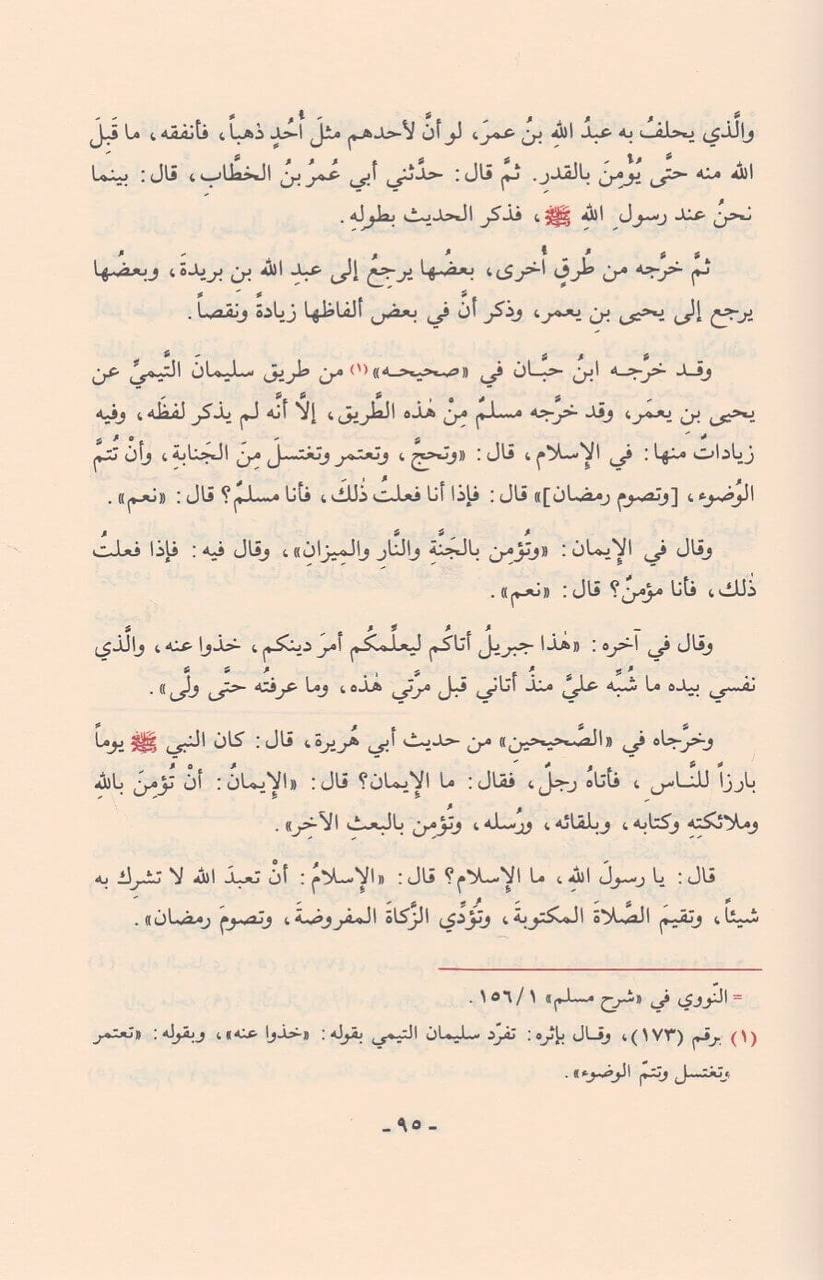 والَّذي يحلفُ به عبدُ اللهِ بنُ عمرَ، لو أنَّ لأحدهم مثلَ أُحُدٍ ذهباً، فأنفقه، ما قَبِلَ
الله منه حتَّى يُؤْمِنَ بالقدرِ. ثمَّ قال: حدَّثني أبي عُمرُ بنُ الخطَّابِ، قال: بينما
نحنُ عند رسولِ اللهِ ﷺ، فذكر الحديث بطولِهِ.
ثمَّ خرَّجه من طُرقٍ أُخرى، بعضُها يرجِعُ إلى عبدِ الله بنِ بريدةَ، وبعضُها
يرجع إلى يحيى بنِ يعمر، وذكر أنَّ في بعض ألفاظها زيادةً ونقصاً.
وقـد خرَّجـه ابنُ حبَّـان في «صحيحـه»(١) من طريق سليمانَ التَّيميِّ عن
يحيى بنِ يعمَر، وقد خرَّجه مسلمٌ مِنْ هٰذه الطَّريق، إلَّا أنَّه لم يذكر لفظَه، وفيه
زياداتٌ منها: في الإِسلام، قال: «وتحجَّ، وتعتمر وتغتسلَ مِنَ الجَنابةِ، وأنْ تُتمَّ
الوُضوء، [وتصوم رمضان]» قال: فإذا أنا فعلتُ ذٰلكَ، فأنا مسلمٌ؟ قال: «نعم».
وقال في الإِيمان: «وتُؤمِن بالجَنَّةِ والنَّارِ والمِيزانِ»، وقال فيه: فإذا فعلتُ
ذٰلك، فأنا مؤمنٌ؟ قال: «نعم».
وقال في آخره: «هٰذا جبريلُ أتاكُم ليعلِّمكُم أمرَ دينكم، خذوا عنه، والَّذي
نفسي بيده ما شُبِّه عليَّ منذُ أتاني قبل مرَّتي هٰذه، وما عرفتُه حتَّى ولَّى».
وخرَّجاه في «الصَّحيحينِ» من حديث أبي هُريرة، قال: كان النبي ﷺ يوماً
بارزاً للنَّـاسِ، فأتاهُ رجلٌ، فقال: ما الإِيمان؟ قال: «الإِيمانُ: أنْ تُؤمِنَ باللهِ
وملائكتِهِ وكتابه، وبلقائه، ورُسله، وتُؤمِن بالبعثِ الآخِر».
قال: يا رسولَ اللهِ، ما الإِسلام؟ قال: «الإِسلامُ: أنْ تعبدَ الله لا تشرِك به
شيئاً، وتقيمَ الصَّلاةَ المكتوبةَ، وتُؤدِّي الزَّكاةَ المفروضةَ، وتصومَ رمضان».
= النّووي في «شرح مسلم» ١/١٥٦.
(١) برقم (١٧٣)، وقـال بإثره: تفرّد سليمان التيمي بقوله: «خذوا عنه»، وبقوله: «تعتمر
وتغتسل وتتمّ الوضوء».
- ٩٥ -